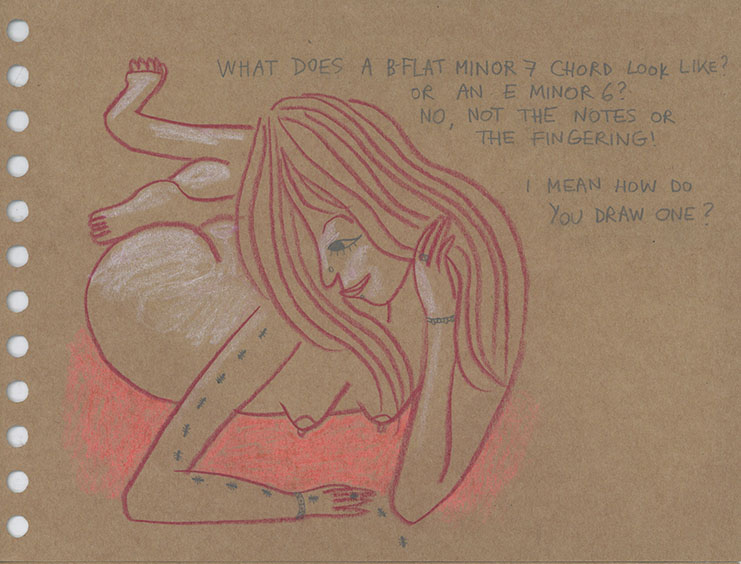 WHAT DOES A B-FLAT MINOR 7 CHORD LOOK LIKE?
OR AN E MINOR 6?
NO, NOT THE NOTES OR
THE FINGERING!
I MEAN HOW DO
YOU DRAW ONE?